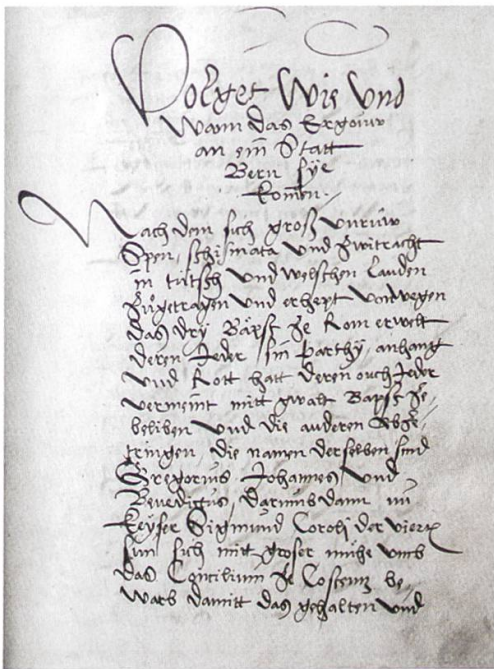 Volget Wie Und
Wann das Ergöuw
an ein Statt
Bern sÿe
komen.
Nach dem sich groß unruw
Spen, schismata und Zwitracht
in tütsch und welschen Landen
Zůgetragen und erhept vonwegen
das drÿ Bäpst Ze Rom erwelt
deren Jeder sin parthÿ, anhang
und Rott hatt deren ouch Jeder
vermeint mitt gwalt Bapst Ze,
beliben und die anderen abZe,
tringen, die namen derselben sind
Gregorius Johannes und
Benedictus, darumb dann nu
Keÿser Sigmund Caroli der vierten
sun sich mitt groser mühe umb
das Concilium Ze Costentz be,
warb damitt das gehalten und